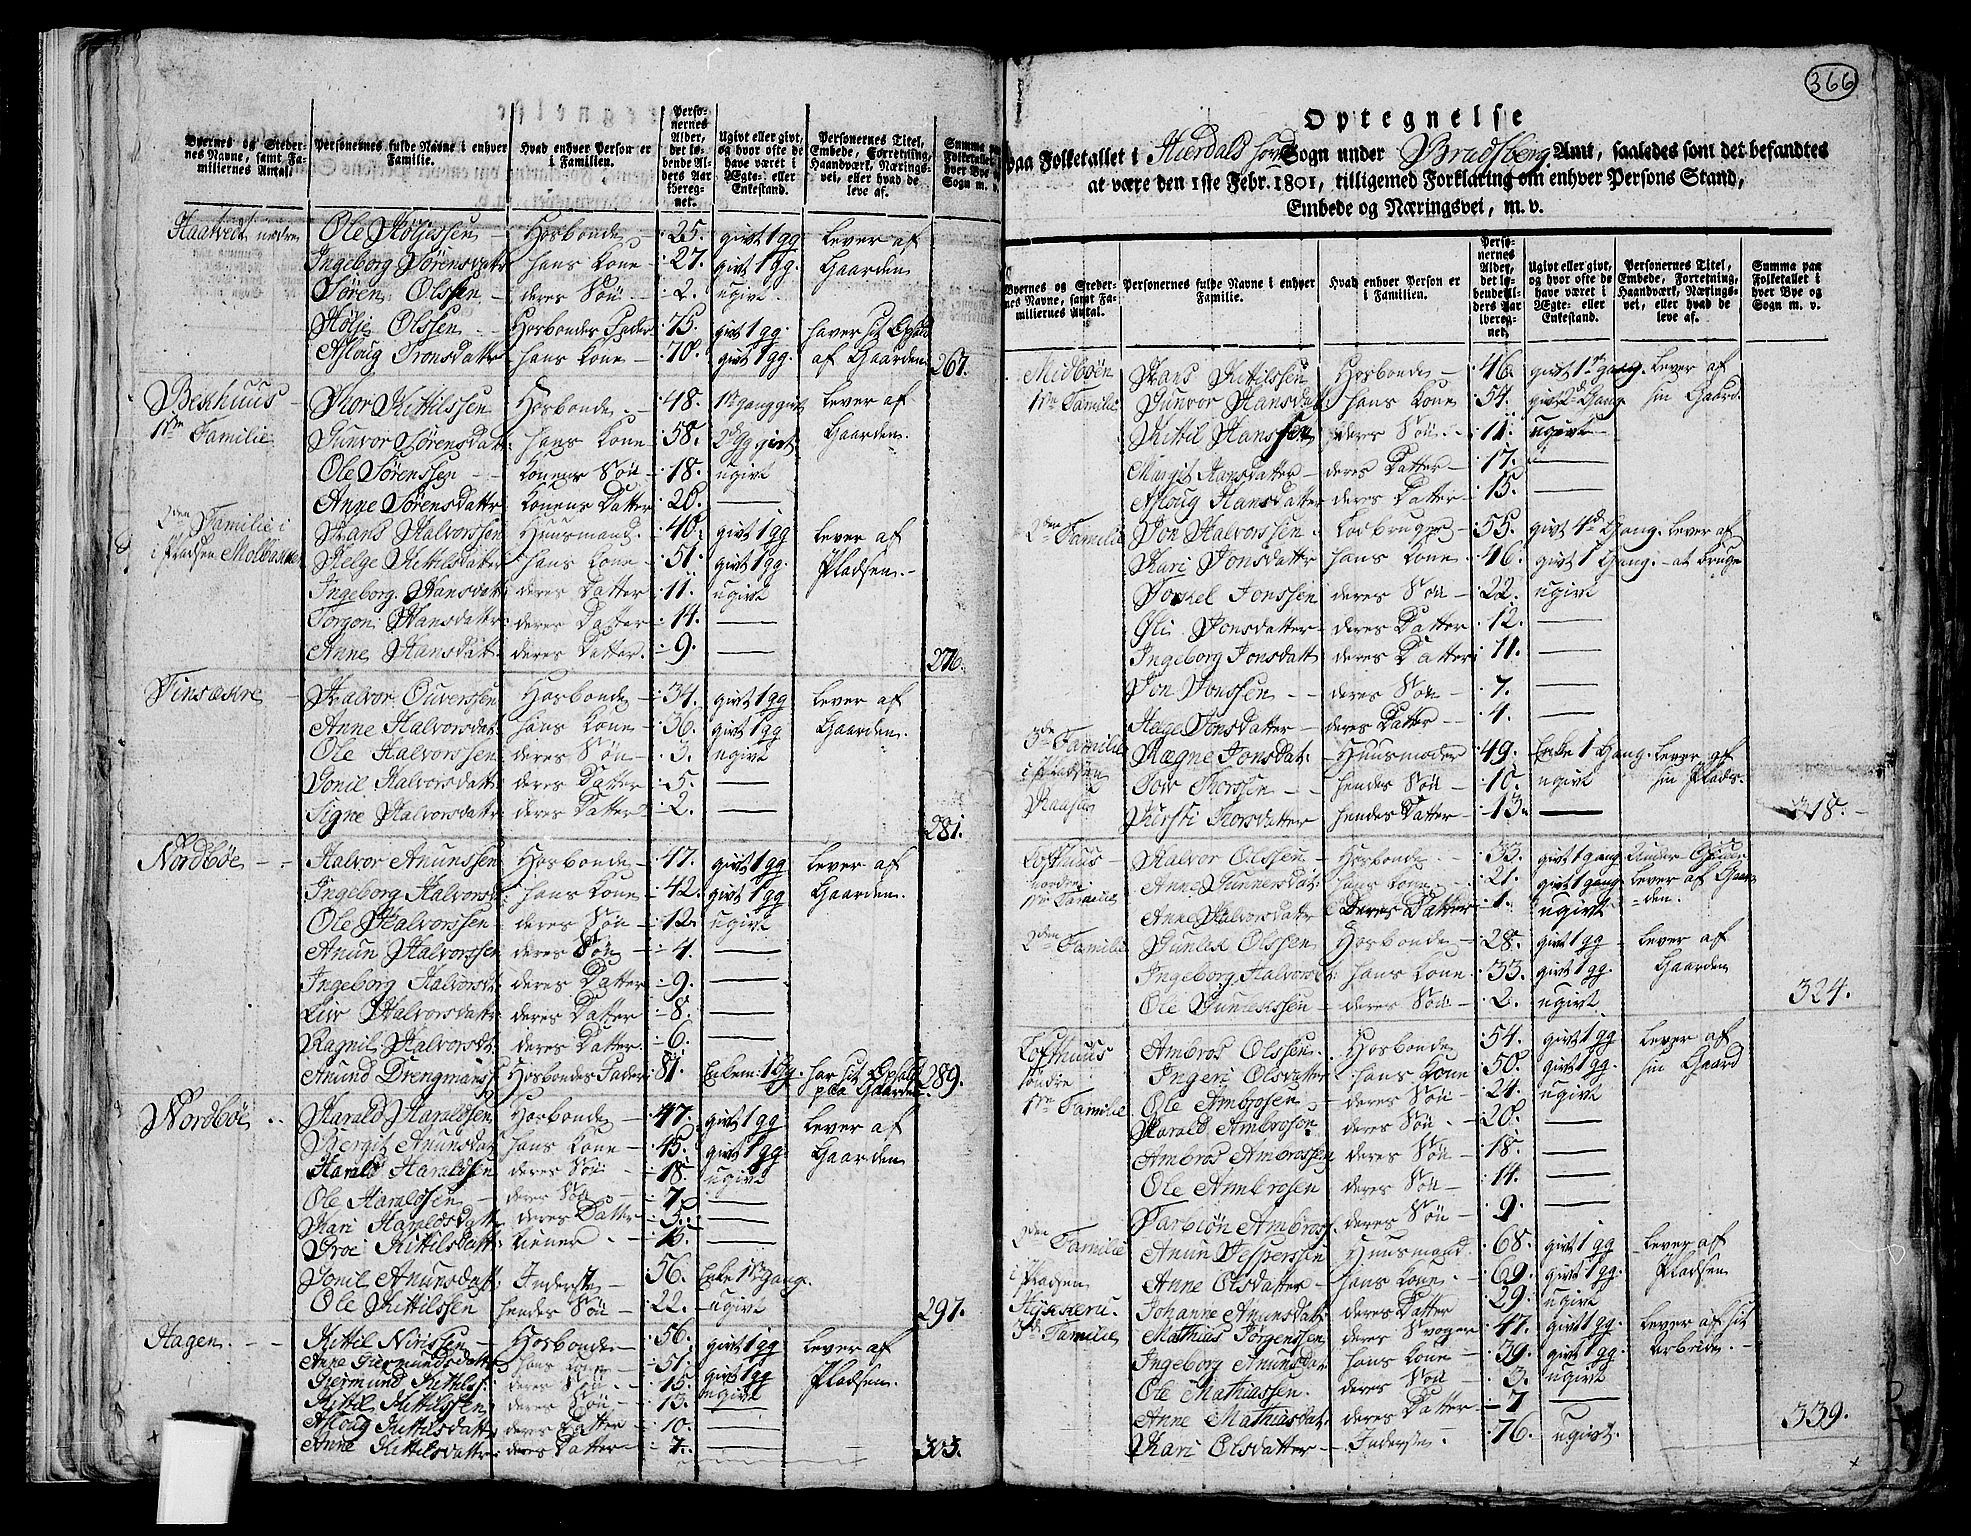 Byernes og Stedernes Navne, samt Familiernes Antal.
Personernes fulde Navne i enhver Familie.
Hvad enhver Person er i Familien.
Personernes Alder, det løbende Alders Aar iberegnet.
Ugivt eller givt, og hvor ofte de have været i Ægte- eller Enkestand.
Personernes Titel, Embede, Forretning, Haandværk, Næringsvei, eller hvad de leve af.
Summa paa Folketallet i hver Bye og Sogn m. v.
Haatvedt nedre Ole Høljessen Hosbonde 25. givt 1 gg lever af
Ingeborg Sørensdatr hans Kone 27. givt 1 gg. Gaarden
Søren Olssen deres Søn 2. ugivt
Hølje Olssen Hosbondes Fader 75. givt 1 gg. haver sit Ophold
Asloug Tronsdattr hans Kone 70. givt 1 gg. af Gaarden 267.
Bekhuus Thor Kittilssen Hosbonde 48. 1st gang givt lever af
1ste Familie Gunvor Sørensdatt: hans Kone 58. 2d gg givt Gaarden.
Ole Sørenssen Konens Søn 18. ugivt
Anne Sørensdattr Konens Datter 26. —
2den Familie i Hans Halvorssen Huusmand 40. givt 1 gg lever af
i Pladsen Helge Kittilsdatter hans Kone 51. givt 1 gg. Pladsen.
Ingeborg Hansdatt: deres Datter 11. ugivt
Torgon Hansdatter: deres Datter 14. —
Anne Hansdatt: deres Datter 9. — 276.
Halvor Ouverssen Hosbonde 34. givt 1 gg lever af
Anne Halvorsdat: hans Kone 36. givt 1 gg Gaarden.
Ole Halvorssen deres Søn 3. ugivt
Gonil Halvorsdattr deres Datter 5. —
Signe Halvorsdattr deres Datter 2. — 281.
Nordbøe Halvor Anunssen Hosbonde 47. givt 1 gg lever af
Ingeborg Halvorsd: hans Kone 42. givt 1 gg Gaarden.
Ole Halvorssen deres Søn 12. ugivt
Anun Halvorssen deres Søn 4. —
Ingeborg Halvorsd: deres Datter 9. —
Liv Halvorsdattr deres Datter 8. —
Ragnil Halvorsdt: deres Datter 6. —
Anund Drengmanss: Hosbondes Fader 81. Enkem: 1 Gg. har sit Ophold paa Gaarden. 289.
Nordbøe Harald Haraldsen Hosbonde 47. givt 1 gg lever af
Bergit Anunsdat hans Kone 45. givt 1 gg. Gaarden
Harald Haraldsen deres Søn 18. ugivt
Ole Haraldssen deres Søn 7. —
Kari Haraldsdattr deres Datter 5. —
Groe Kittilsdatt tiener 16. —
Gonil Anunsdatt: Inderste 56. Enke 1 Gang.
Ole Kittilssen hendes Søn 22. ugivt 297.
Hagen Kittil Nirissen Hosbonde 56. givt 1 gg lever af
Anne Giermundsdattr hans Kone 51. givt 1 gg Pladsen.
Giermund Kittils: deres Søn 15. ugivt
Kittil Kittilssen deres Søn 13. —
Aslaug Kittilsdattr deres Datter 10. —
Anne Kittilsdatter deres Datter 7. — 303.
366
Optegnelse
paa Folketallet i Hierdals Sogn under Bradsberg Amt, saaledes som det befandtes
at være den 1ste Febr. 1801, tilligemed Forklaring om enhver Persons Stand,
Embede og Næringsvei, m. v.
Byernes og Stedernes Navne, samt Familiernes Antal.
Personernes fulde Navne i enhver Familie.
Hvad enhver Person er i Familien.
Personernes Alder, det løbende Alders Aar iberegnet.
Ugivt eller givt, og hvor ofte de have været i Ægte- eller Enkestand.
Personernes Titel, Embede, Forretning, Haandværk, Næringsvei, eller hvad de leve af.
Summa paa Folketallet i hver Bye og Sogn m. v.
Midbøen Hans Kittilssen Hosbonde 46. givt 1st gang. lever af
1ste Familie Gunvor Hansdat: hans Kone 54. givt 2d Gang sin Gaard.
Kittil Hanssen deres Søn 11. ugivt
Margit Hansdatter deres Datter 17. —
Asloug Hansdatter deres Datter 15. —
2den Familie Jon Halvorssen 55. givt 4d Gang. lever af
Kari Jonsdatter hans Kone 46. givt 1 Gang. at bruge
Torkel Jonssen deres Søn 22. ugivt
Øli Jonsdatter deres Datter 12. —
Ingeborg Jonsdatt deres Datter 11. —
Jon Jonssen deres Søn 7. —
Helge Jonsdatter deres Datter 4. —
3de Familie Rægne Jonsdat: Huusmoder 49. Enke 1 Gang. lever af
i Pladsen Tov Thorssen hendes Søn 10. ugivt sin Plads.
Kirsti Thorsdatter hendes Datter 13. — 318.
Lofthuus Halvor Olssen Hosbonde 33. givt 1 gang
nordre Anne Gunnersdat: hans Kone 21. givt 1 gang lever af Gaar
1ste Familie Anne Halvorsdattr deres Datter 1. ugivt den.
2den Familie Gunlek Olssen Hosbonde 28. givt 1 gg lever af
Ingeborg Halvorsd: hans Kone 33. givt 1 gg. Gaarden
Ole Gunlekssen deres Søn 2. ugivt 324.
Lofthuus Ambros Olssen Hosbonde 54. givt 1 gg lever af
søndre Ingeri Olsdatter hans Kone 50. givt 1 gg. sin Gaard
1ste Familie Ole Ambrosen deres Søn 24. ugivt
Harald Ambrosen deres Søn 20. —
Ambros Ambrossen deres Søn 18. —
Ole Ambrosen deres Søn 14. —
Tarbiøn Ambross: deres Søn 9. —
2den Familie Anun Jesperssen Huusmand 68. givt 1 gg lever af
i Pladsen Anne Olsdatter hans Kone 69. givt 1 gg. Pladsen
Johanne Anunsdat: deres Datter 29. ugivt
3de Familie Mathias Jørgenssen deres Svoger 47. givt 1 gg. lever af sit
Ingeborg Anunsdat hans Kone 39. givt 1 gg Arbeide.
Ole Mathiassen deres Søn 3. ugivt
Anne Mathiasdat deres Datter 7 —
Kari Olsdatter Inderste 76. ugivt. 339.